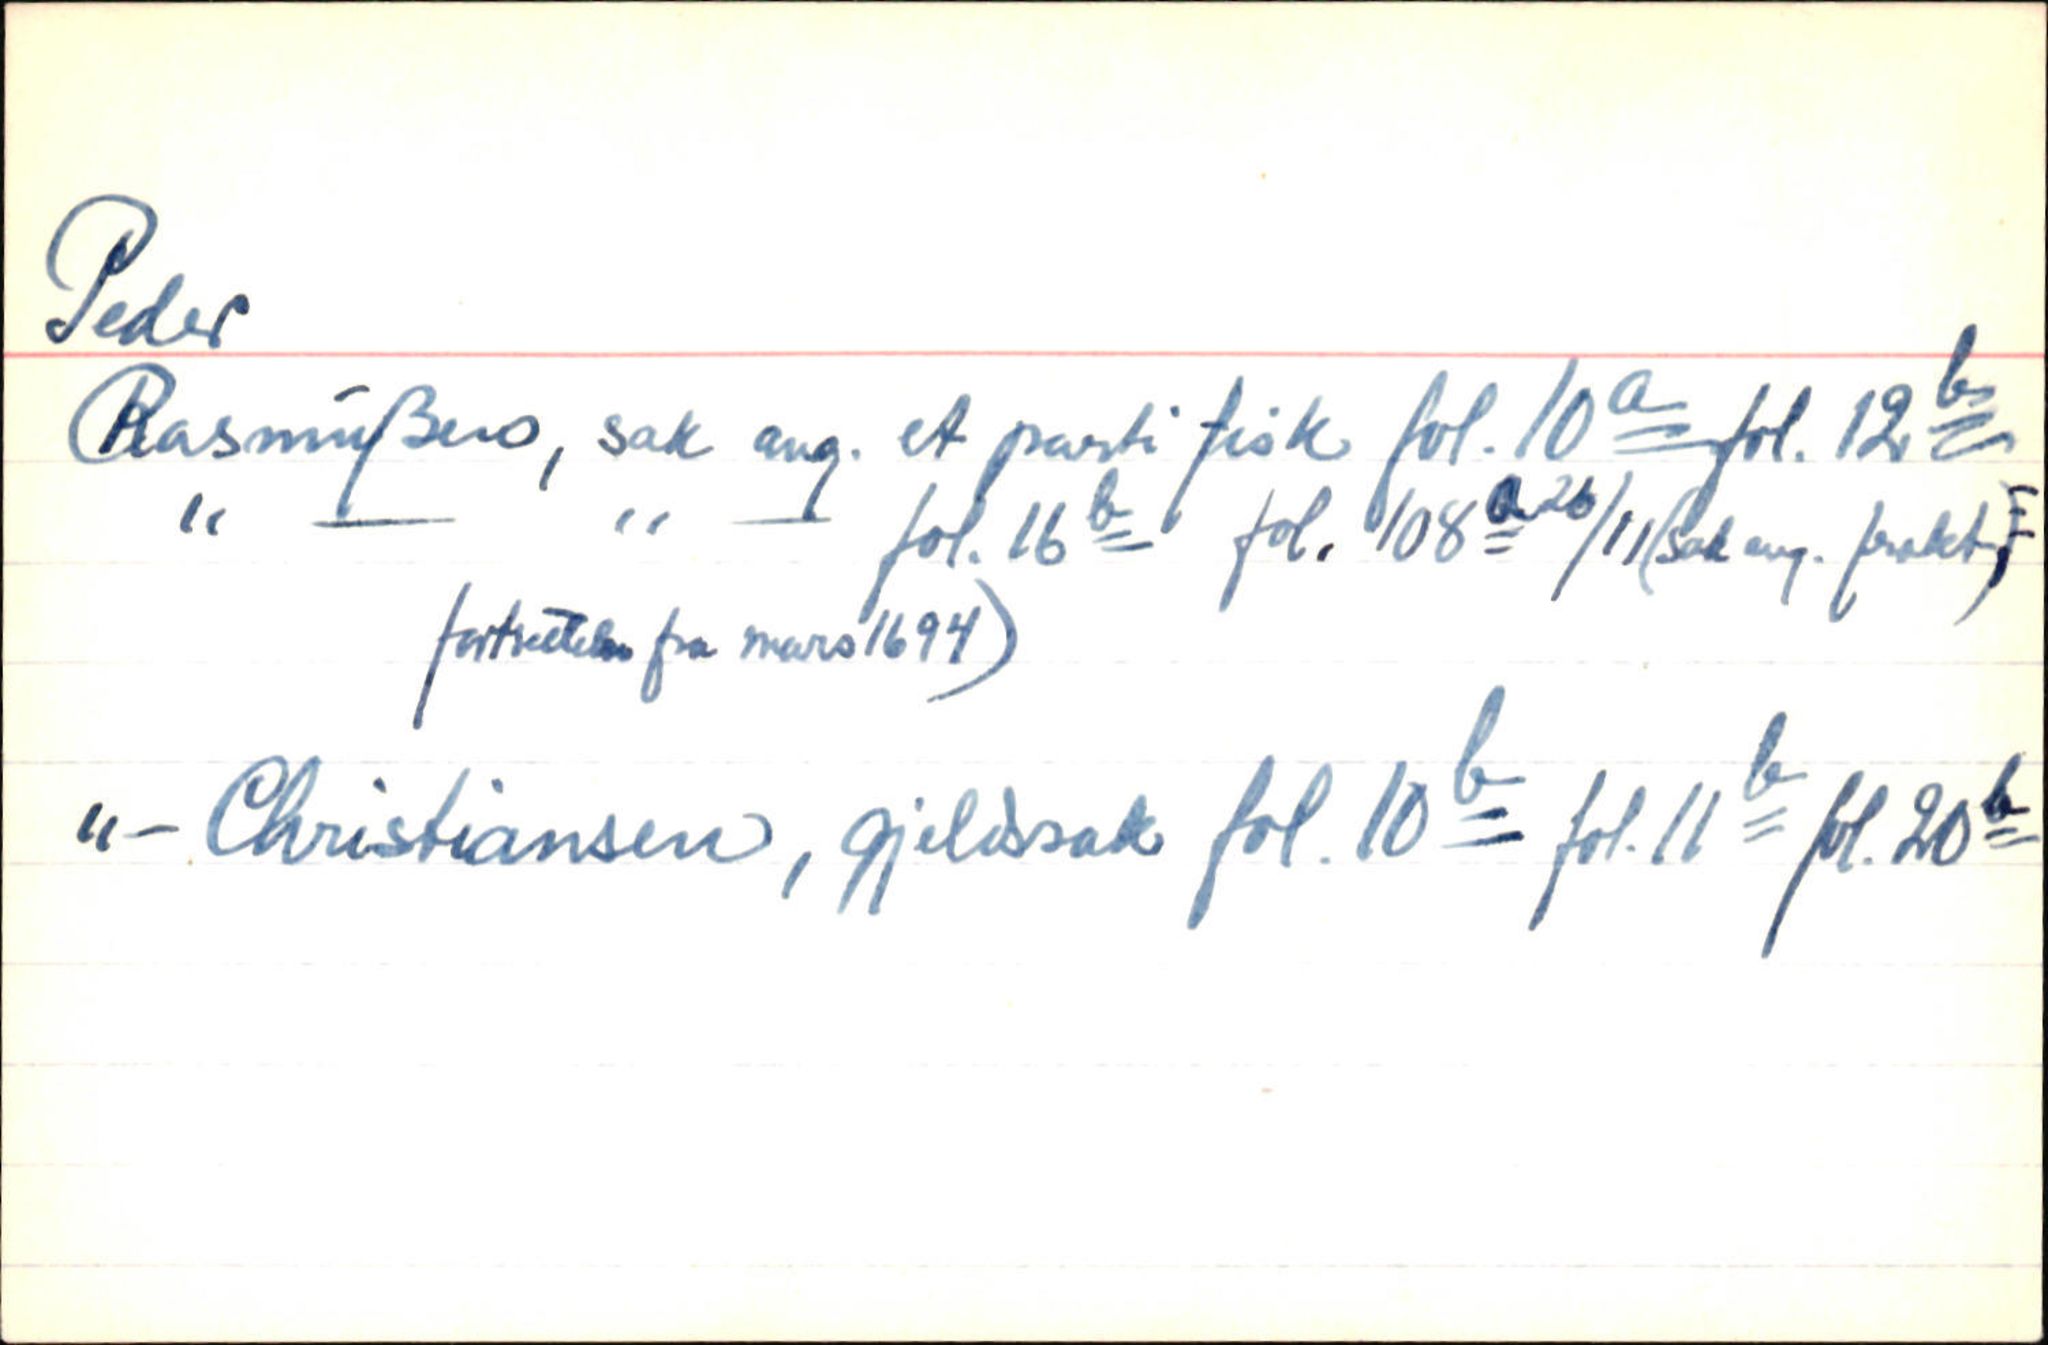 Peder
Rasmußen, sak ang. et parti fisk fol. 10a fol. 12b
" — " — fol. 16b fol. 108a 26/11 (sak ang. frakt,
fortsettelse fra mars 1694)
"- Christiansen, gjeldssak fol. 10b fol. 11b fol. 20b